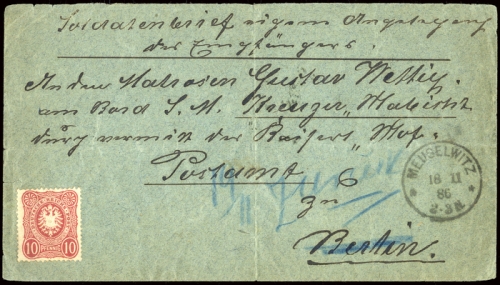 Soldatenbrief eigene Angelegenh
des Empfängers.
An den Matrosen Gustav Wettig.
am Bord S. M. Kreuzer „Habicht
durch vermitt der Kaiserl. Mar.
Postamt
zu
Berlin.
MEUSELWITZ
18 II
86
2-3N
10 PFENNIG 10